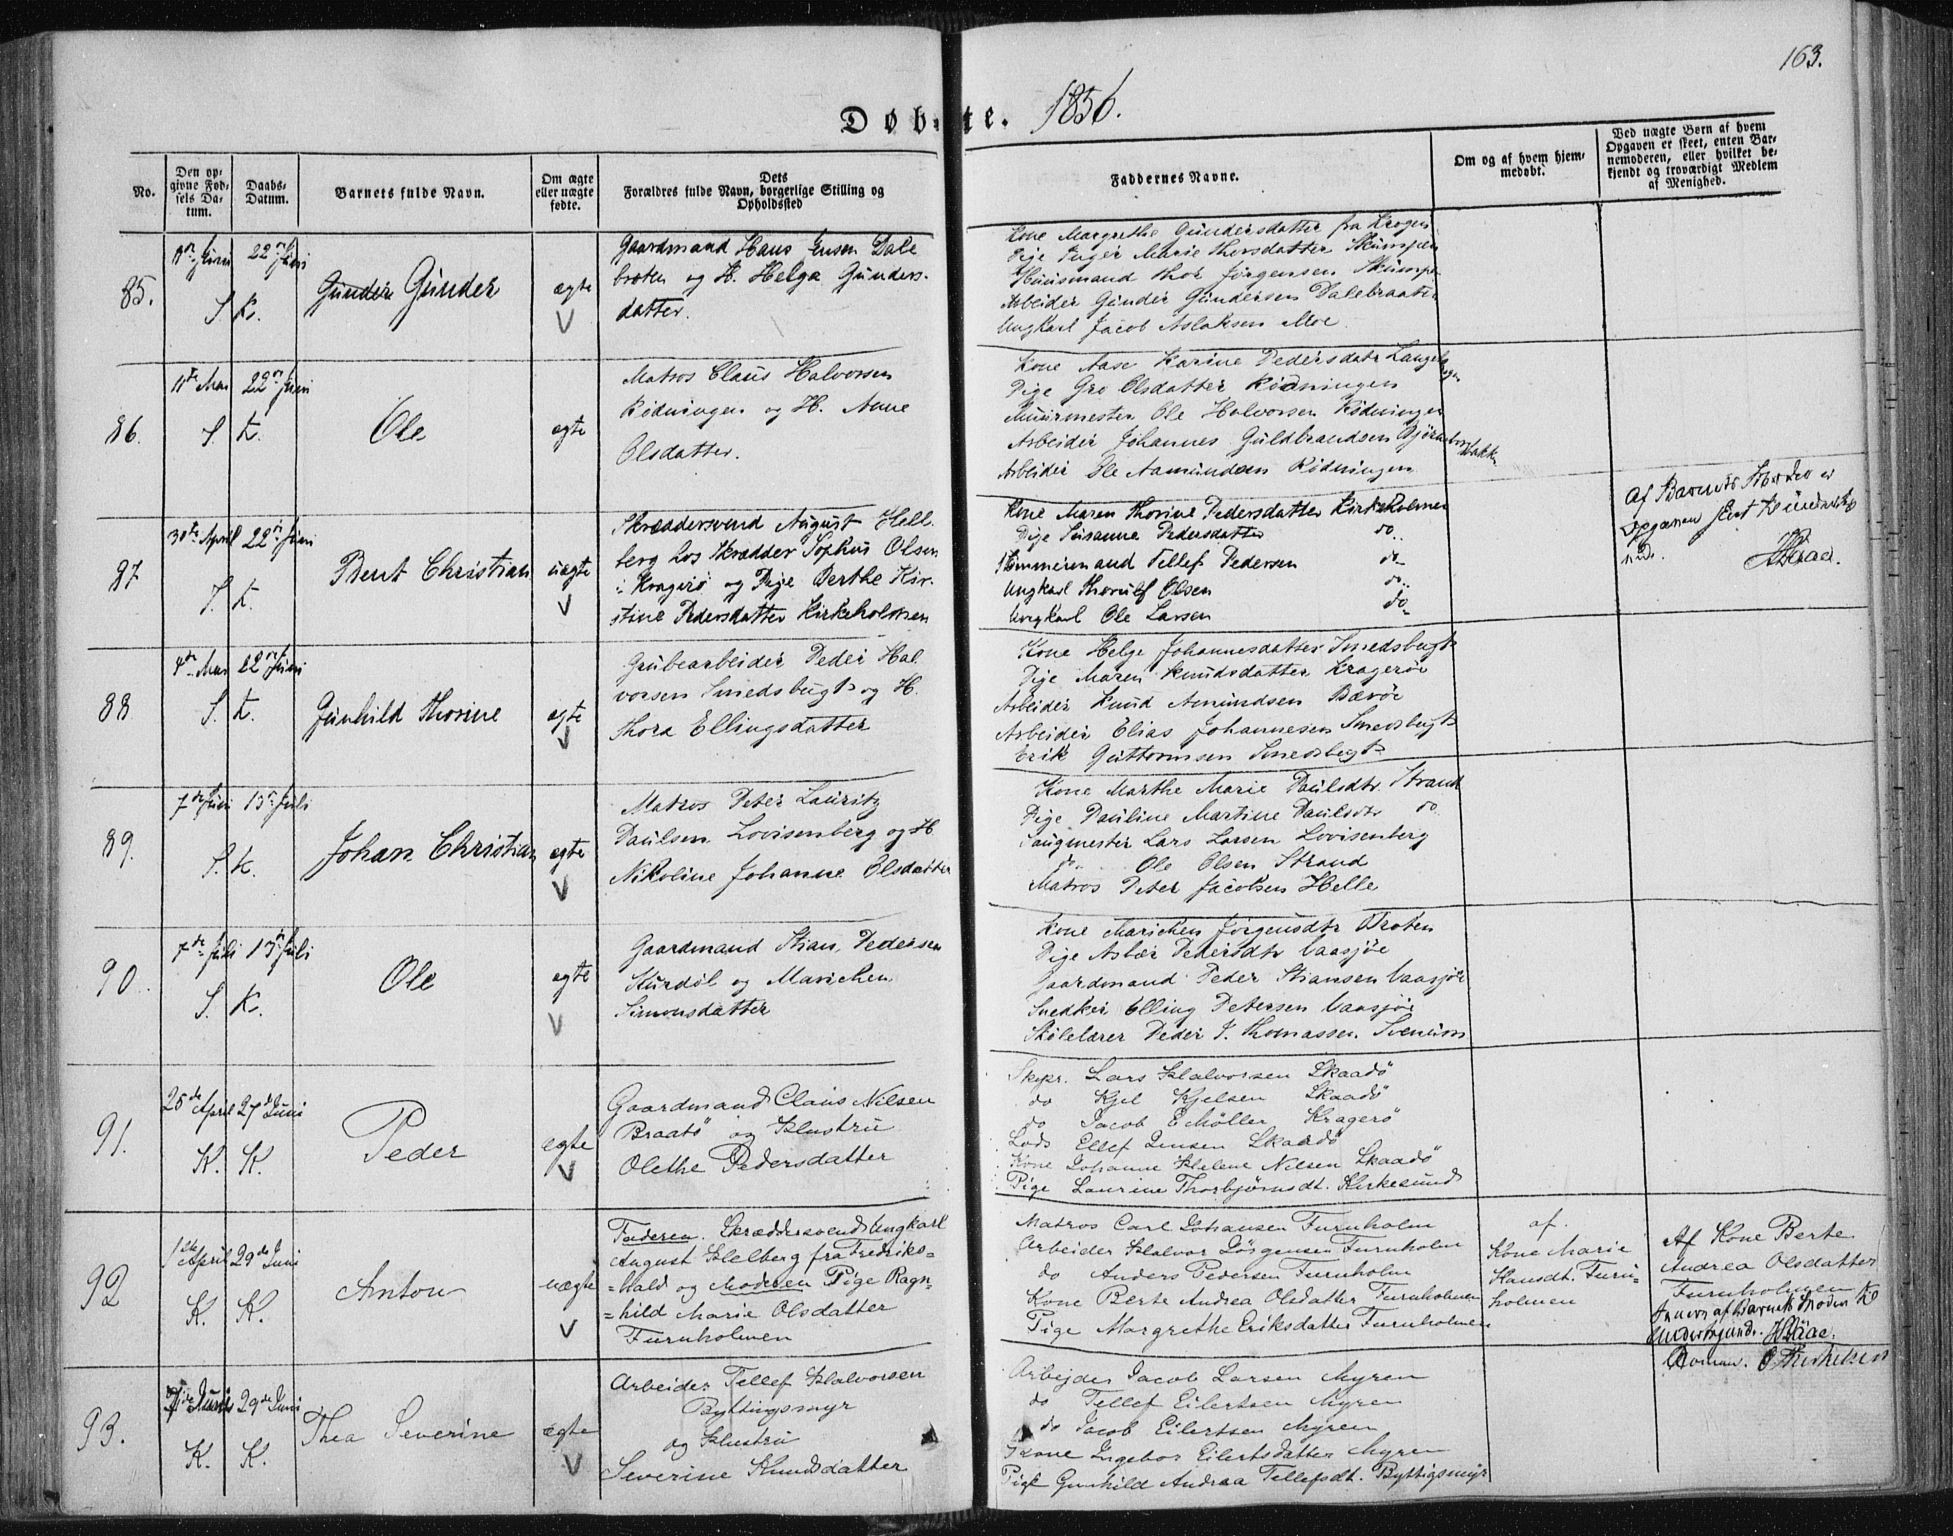 163.
Døbte. 1856.
No.
Den opgivne Fødsels Datum.
Daabs-Datum.
Barnets fulde Navn.
Om ægte eller uægte fødte.
Dets Forældres fulde Navn, borgerlige Stilling og Opholdssted
Faddernes Navne.
Om og af hvem hjemmedøbt.
Ved uægte Børn af hvem Opgaven er skeet, enten Barnemoderen, eller hvilket bekjendt og troværdigt Medlem af Menighed.
85.
22de Juni
S. K.
Gunder Gunder
ægte
V
Gaardmand Hans Jensen Dale
broten og H. Helga Gunders-
datter.
Kone Margrethe Gundersdatter fra Krogen
Pige Inger Marie Thorsdatter Skumpen
Huusmand Thor Jørgensen Skumpen
Arbeider Gunder Gundersen Dalebraaten
Ungkarl Jacob Aslaksen Moe
86.
11te Mai 22de Juni
S. K.
Ole
egte
Matros Claus Halvorsen
Rødningen og H. Anne
Olsdatter.
Kone Aase Karine Pedersdatr Langeb
Pige Gro Olsdatter Rødningen
Muurmester Ole Halvorsen Rødningen
Arbeider Johannes Guldbrandsen
Arbeider Ole Aamundsen Rødningen
87
30te April 22de Juni
S. K.
Bent Christian
uægte
V
Skræddersvend August Hell
berg hos Skrædder Sophus Olsen
i Kragerø og Pige Berthe Kir-
stine Pedersdatter Kirkeholmen
Kone Maren Thorine Pedersdatter Kirkeholmen
Pige Susanne Pedersdatter do.
Tømmermand Tellef Pedersen do
Ungkarl Thorulf Olsen do
Ungkarl Ole Larsen do
Af Barnets Moder er
Opgaven skeet
88
4de Mai 22de Juni
S. K.
Gunhild Thorine
egte
V
Grubearbeider Peder Hal
vorsen Smedsbugt og H.
Thora Ellingsdatter
Kone Helge Johannesdatter Smedsbugt
Pige Maren Knudsdatter Kragerøe
Arbeider Knud Amundsen Bærøe
Arbeider Elias Johannesen Smedsbugt
Erik Guttormsen Smedsbugt
89.
7de Juni 13de Juli
S. K.
Johan Christian
egte
V
Matros Peter Lauritz
Paulsen Lovisenberg og H
Nikoline Johanne Olsdatter
Kone Marthe Marie Paulsdtr. Strand
Pige Pauline Martine Paulsdtr do
Saugmester Lars Larsen Lovisenberg
do Ole Olsen Strand
Matros Peter Jacobsen Helle
90
7de Juli 13de Juli
S. K.
Ole
egte
V
Gaardmand Stian Pedersen
Sturdøl og Marichen
Simonsdatter
Kone Marichen Jørgensdtr Broten
Pige Asbør Pedersdtr Vaasjøe
Gaardmand Peder Stiansen Vaasjøe
Snedker Elling Petersen Vaasjøe
Skolelærer Peder J. Thomassen
91.
25de April 27de Juni
K. K.
Peder
ægte
V
Gaardmand Claus Nilsen
Braatø og Hustru
Olethe Pedersdatter
Skipr. Lars Halvorsen Skaadø
do Kjel Kjelsen Skaadø
do Jacob E Møller Kragerø
Lods Ellef Jensen Skaadø
Kone Johanne Helene Nilsen Skaadø
Pige Laurine Thorbjørnsdt. Kirkesund
92
1ste April 29de Juni
K. K.
Anton
uægte
V
Faderen. Skræddersvend Ungkarl
August Helberg fra Fredriks=
=hald og Moderen Pige Ragn=
=hild Marie Olsdatter
Furuholmen
Matros Carl Johansen Furuholm
Arbeider Halvor Jørgensen Furuholm
do Anders Pedersen Furuholm
Kone Berte Andrea Olsdatter Furuholmen
Pige Margrethe Eriksdatter Furuholmen
af
Kone Marie
Hansdt. Furu-
holmen
Af Kone Berte
Andrea Olsdatter
Furuholmen
93.
29de Juni
K. K.
Thea Severine
ægte
V
Arbeider Tellef Halvorsen
Byttingsmyr
og Hustru
Severine Knudsdatter
Arbejder Jacob Larsen Myren
do Tellef Eilertsen Myren
do Jacob Eilertsen Myren
Kone Ingebor Eilertsdatter Myren
Pige Gunhild Andrea Tellefsdt. Byttigsmyr